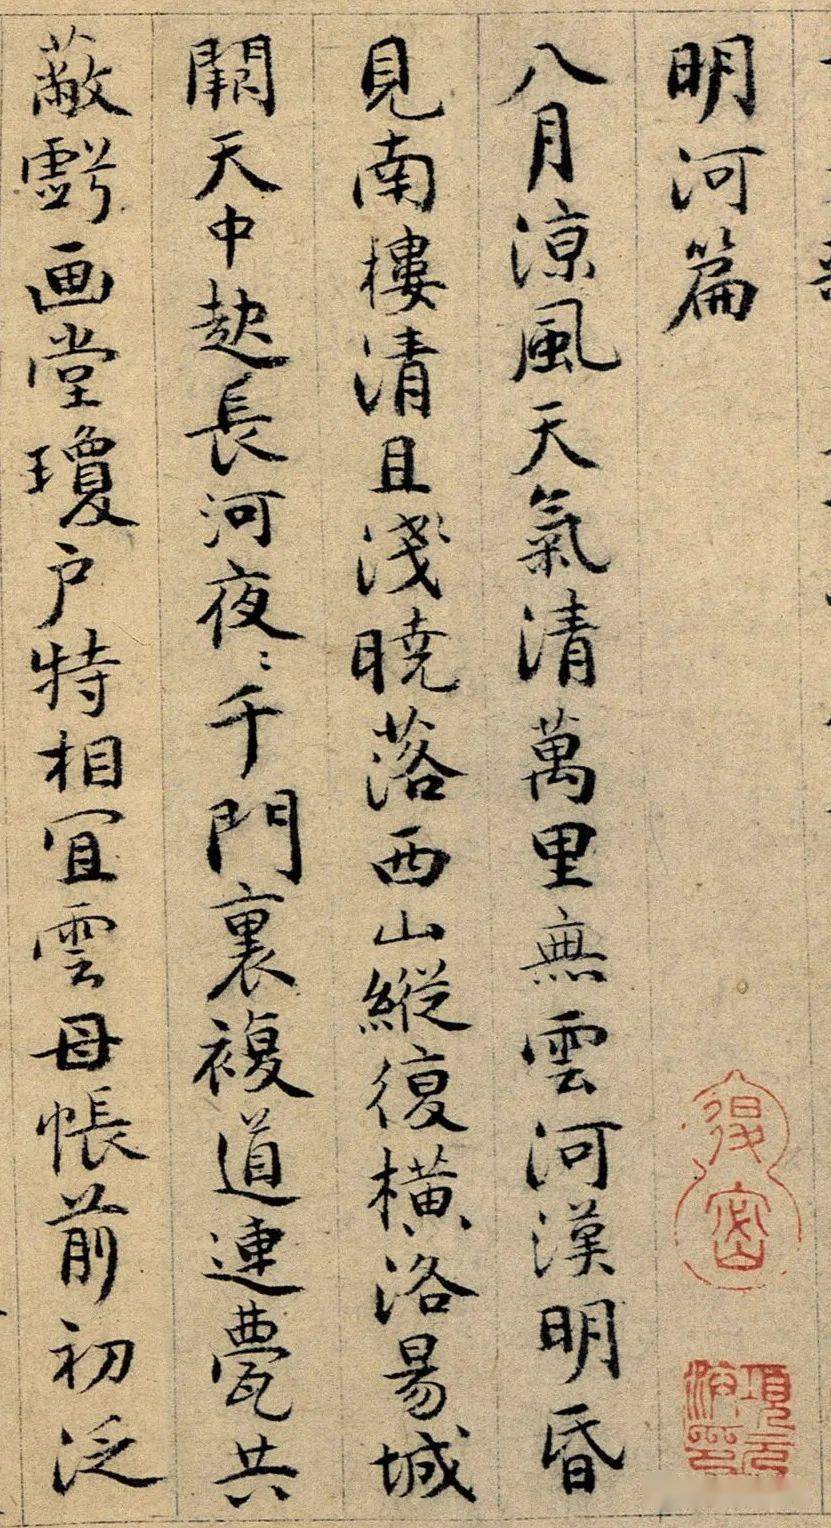 明河篇
八月涼風天氣清萬里無雲河漢明昏
見南樓清且淺曉落西山縱復橫洛昜城
闕天中起長河夜〻千門裏複道連甍共
蔽虧画堂瓊户特相宜雲母帳前初泛
退密
項元汴印